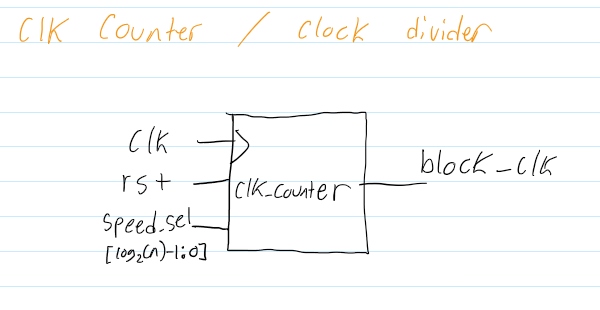 Clk Counter / Clock divider
Clk
rst
speed_sel
[log₂(n)-1:0]
Clk_counter
block_clk